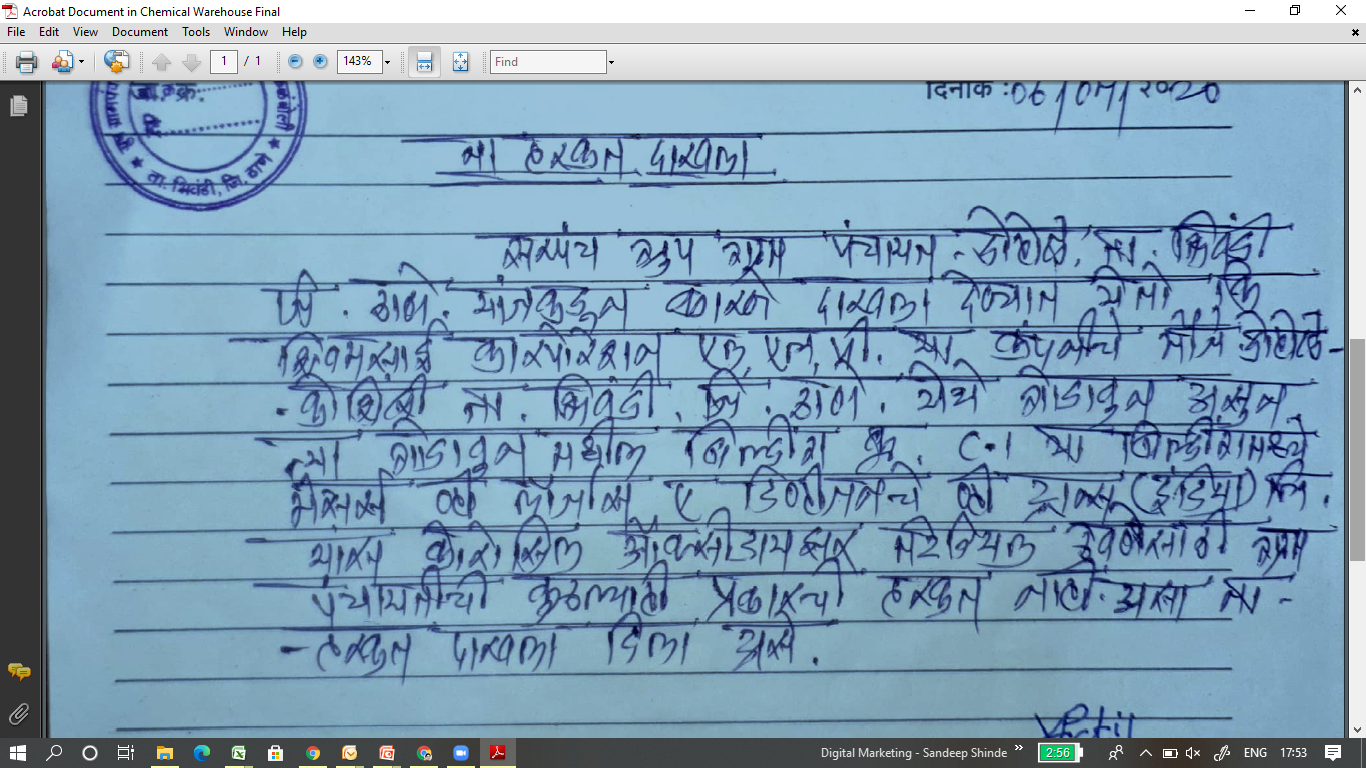 Acrobat Document in Chemical Warehouse Final
File Edit View Document Tools Window Help
1 / 1 143% Find
जा.क्र.
ता. भिवंडी, जि. ठाणे
दिनांक :06/07/2020
ना हरकत दाखला
सरपंच ग्रुप ग्राम पंचायत - डोहोळे, ता. भिवंडी
जि. ठाणे. यांजकडून कारणे दाखला देण्यात येतो कि
शिवमसाई कारपोरेशन एल, एल, पी. या कंपनीचे मौजे डोहोळे-
- कोशिंबी ता. भिवंडी. जि. ठाणे. येथे गोडावुन असुन
त्या गोडावुन मधील बिल्डींग क्र. C-1 या बिल्डींगमध्ये
मेसर्स व्ही ए डिव्हीजनचे व्ही (इंडिया) लि.
यांस ऑक्सीडायझर मटेरियल ठेवणेसाठी ग्राम
पंचायतीची कुठल्याही प्रकारची हरकत नाही. असा ना-
- हरकत दाखला दिला असे.
Digital Marketing - Sandeep Shinde » 2:56 ENG 17:53